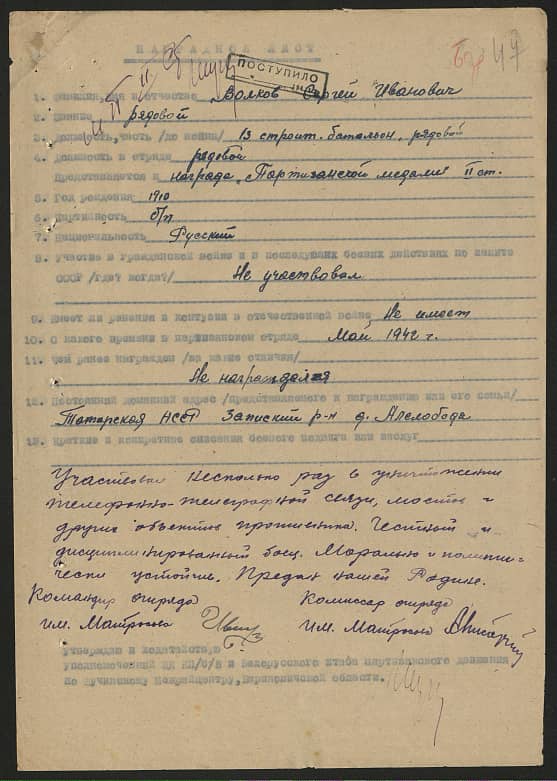 НАГРАДНОЙ ЛИСТ
ПОСТУПИЛО
47
1. Фамилия, имя и отчество Волков Сергей Иванович
2. Звание рядовой
3. Должность, часть /до войны/ 13 строит. батальон, рядовой
4. Должность в отряде рядовой
Представляется к награде "Партизанской медали" II ст.
5. Год рождения 1910
6. Партийность б/п
7. Национальность Русский
8. Участие в гражданской войне и в последующих боевых действиях по защите
СССР /где? когда?/ Не участвовал
9. Имеет ли ранения и контузии в отечественной войне Не имеет
10. С какого времени в партизанском отряде Май 1942 г.
11. Чем ранее награжден /за какие отличия/
Не награждался
12. Постоянный домашний адрес /представляемого к награждению или его семьи/
Татарская АССР р-н д.
13. Краткое и конкретное описание боевого подвига или заслуг
Участвовал несколько раз в уничтожении
телефонно-телеграфной связи, мостов и
других объектов противника. Честный и
дисциплинированный боец. Морально и полити-
чески устойчив. Предан нашей Родине.
Командир отряда Комиссар отряда
им. им.
Утверждаю и ходатайствую
Уполномоченный ЦК КП/б/Б и Белорусского штаба партизанского движения
по Межрайцентру, Барановичской области.